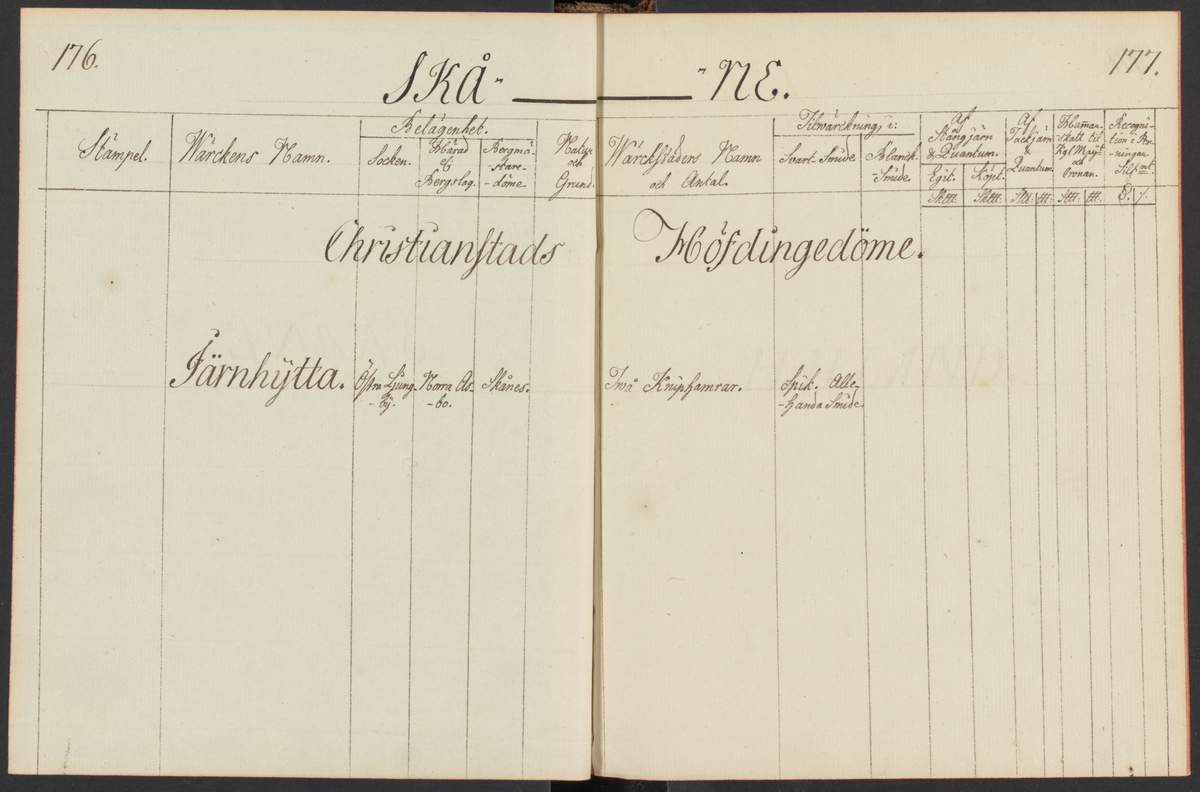 176.
177.
SKÅ
NE.
Stämpel.
Wärckens Namn.
Belägenhet.
Socken.
Härad
&
Bergslag.
Bergmä-
stare-
-döme
Natur
och
Grund.
Wärckstädens Namn
och Antal.
Tilwärckning, i:
Svart-Smide
Blanck-
-Smide
Af
Stångjärn
Quantum.
Egit.
Köpt.
Af
Tackjärn
Quantum.
Hamar-
skatt til
Kgl. Maijt
och
Cronan.
Recogni-
tion i Pen-
ningar.
Silfmt
Skttt.
Skttt.
Christianstads Höfdingedöme.
Järnhÿtta.
Östra Ljung-
-bÿ.
Norra As-
-bo.
Skånes.
Två Kniphamrar.
Spik. Alle-
-handa Smide.